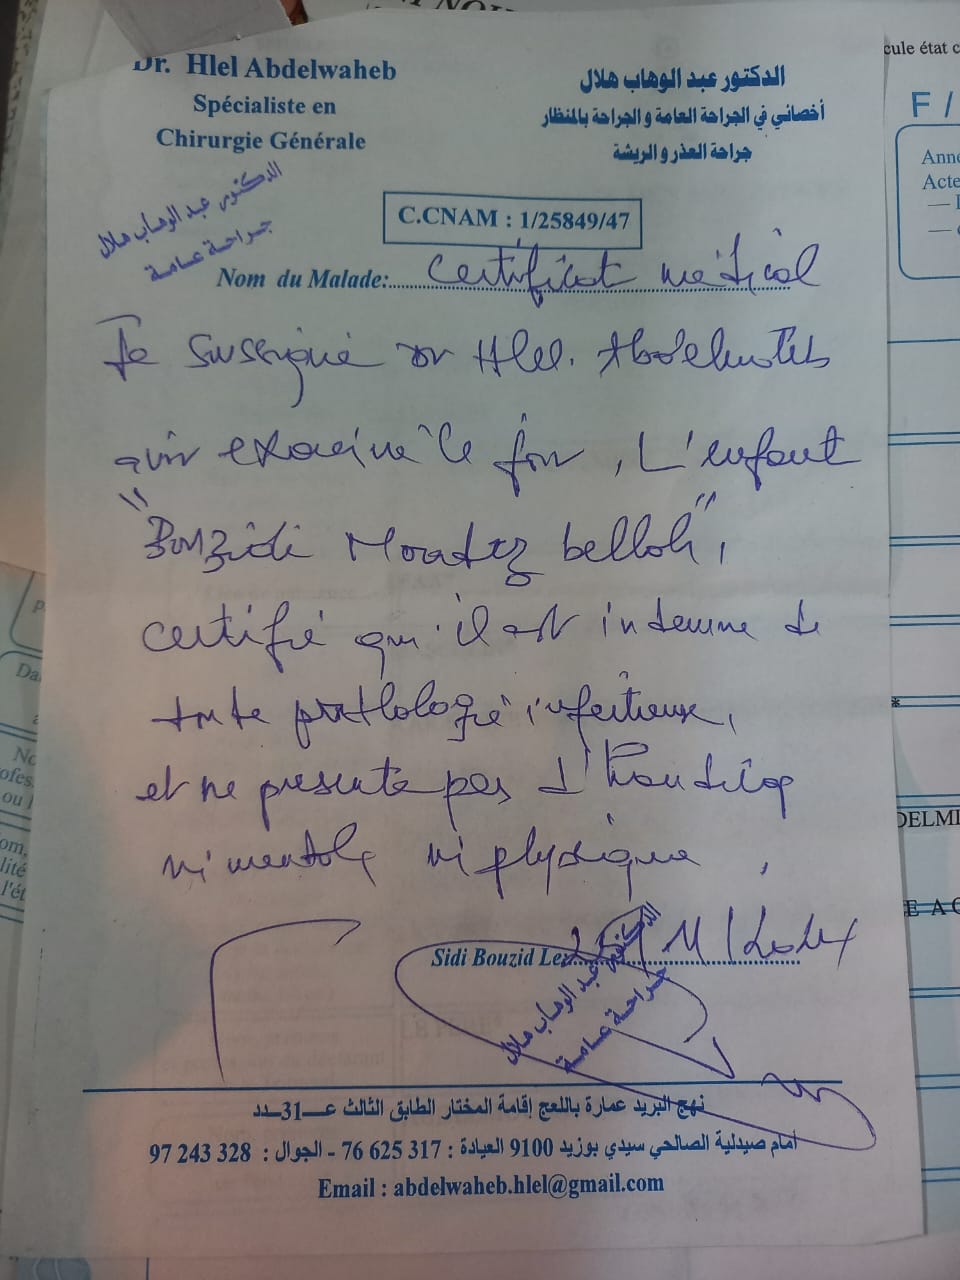 Dr. Hlel Abdelwaheb
Spécialiste en
Chirurgie Générale
الدكتور عبد الوهاب هلال
أخصائي في الجراحة العامة و الجراحة بالمنظار
جراحة العذر و الريشة
الدكتور عبد الوهاب هلال
جراحة عامة
C.CNAM : 1/25849/47
Nom du Malade: Certificat médical
Je soussigné Dr Hlel. Abdelwaheb
avoir examiné ce jour, L'enfant
"Bouzidi Moadez bellah",
certifié qu'il est indemne de
toute pathologie infectieuse,
et ne présente pas d'handicap
ni mentale ni physique,
Sidi Bouzid Le
الدكتور عبد الوهاب هلال
جراحة عامة
نهج البريد عمارة باللعج إقامة المختار الطابق الثالث عـــ31ــدد
أمام صيدلية الصالحي سيدي بوزيد 9100 العيادة : 317 625 76 - الجوال : 328 243 97
Email : abdelwaheb.hlel@gmail.com
cule état c
F /
Anne
Acte
DELMI
E A C
Da
No
ofes
ou
om,
lité
l'ét